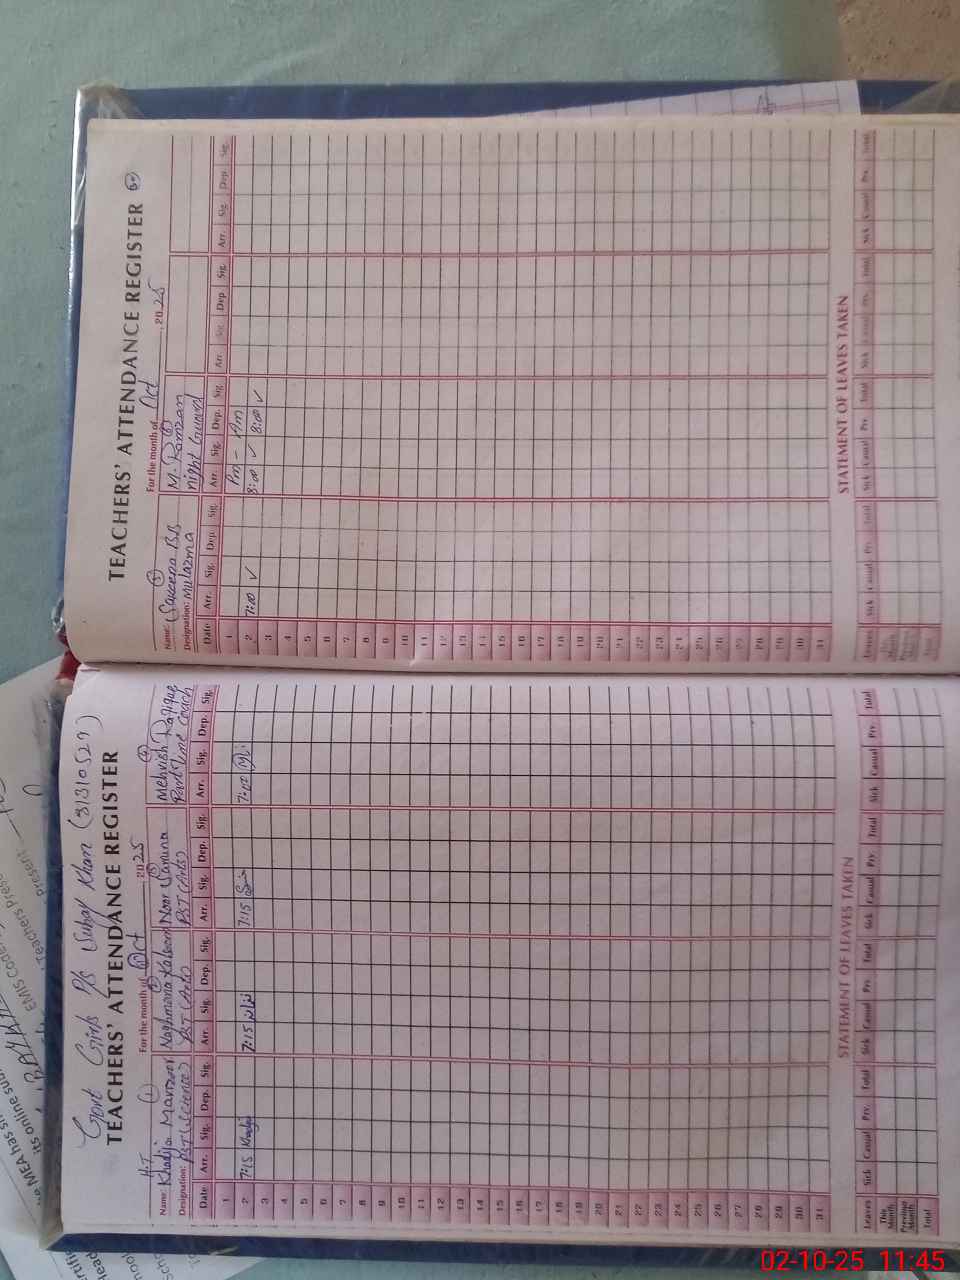 Govt Girls P/S Suhay Khan (31310527)
TEACHERS' ATTENDANCE REGISTER
For the month of Oct 2025
H.T
Name: Khadija Manzoor (1) Naghmana Kalsoom (2) Noor Samina (3) Mehvish Rafique (4)
Designation: PST (Science) PST (Arts) PST (Arts) Part Time Coach
Date Arr. Sig. Dep. Sig. Arr. Sig. Dep. Sig. Arr. Sig. Dep. Sig. Arr. Sig. Dep. Sig.
1
2 7:15 Khadija 7:15 7:15 7:02
3
4
5
6
7
8
9
10
11
12
13
14
15
16
17
18
19
20
21
22
23
24
25
26
27
28
29
30
31
STATEMENT OF LEAVES TAKEN
Leaves Sick Casual Prv. Total Sick Casual Prv. Total Sick Casual Prv. Total Sick Casual Prv. Total
This Month
Previous Month
Total
TEACHERS' ATTENDANCE REGISTER
For the month of Oct 2025
Name: BB (5) M. Ramzan (6)
Designation: Mulazma night Guard
Date Arr. Sig. Dep. Sig. Arr. Sig. Dep. Sig. Arr. Sig. Dep. Sig. Arr. Sig. Dep. Sig.
1 Pm - Am
2 7:00 ✓ 8:00 ✓ 8:00 ✓
3
4
5
6
7
8
9
10
11
12
13
14
15
16
17
18
19
20
21
22
23
24
25
26
27
28
29
30
31
STATEMENT OF LEAVES TAKEN
Leaves Sick Casual Prv. Total Sick Casual Prv. Total Sick Casual Prv. Total Sick Casual Prv. Total
This Month
Previous Month
Total
MEA has
its online
EMIS Code
Teachers
Present
02-10-25 11:45